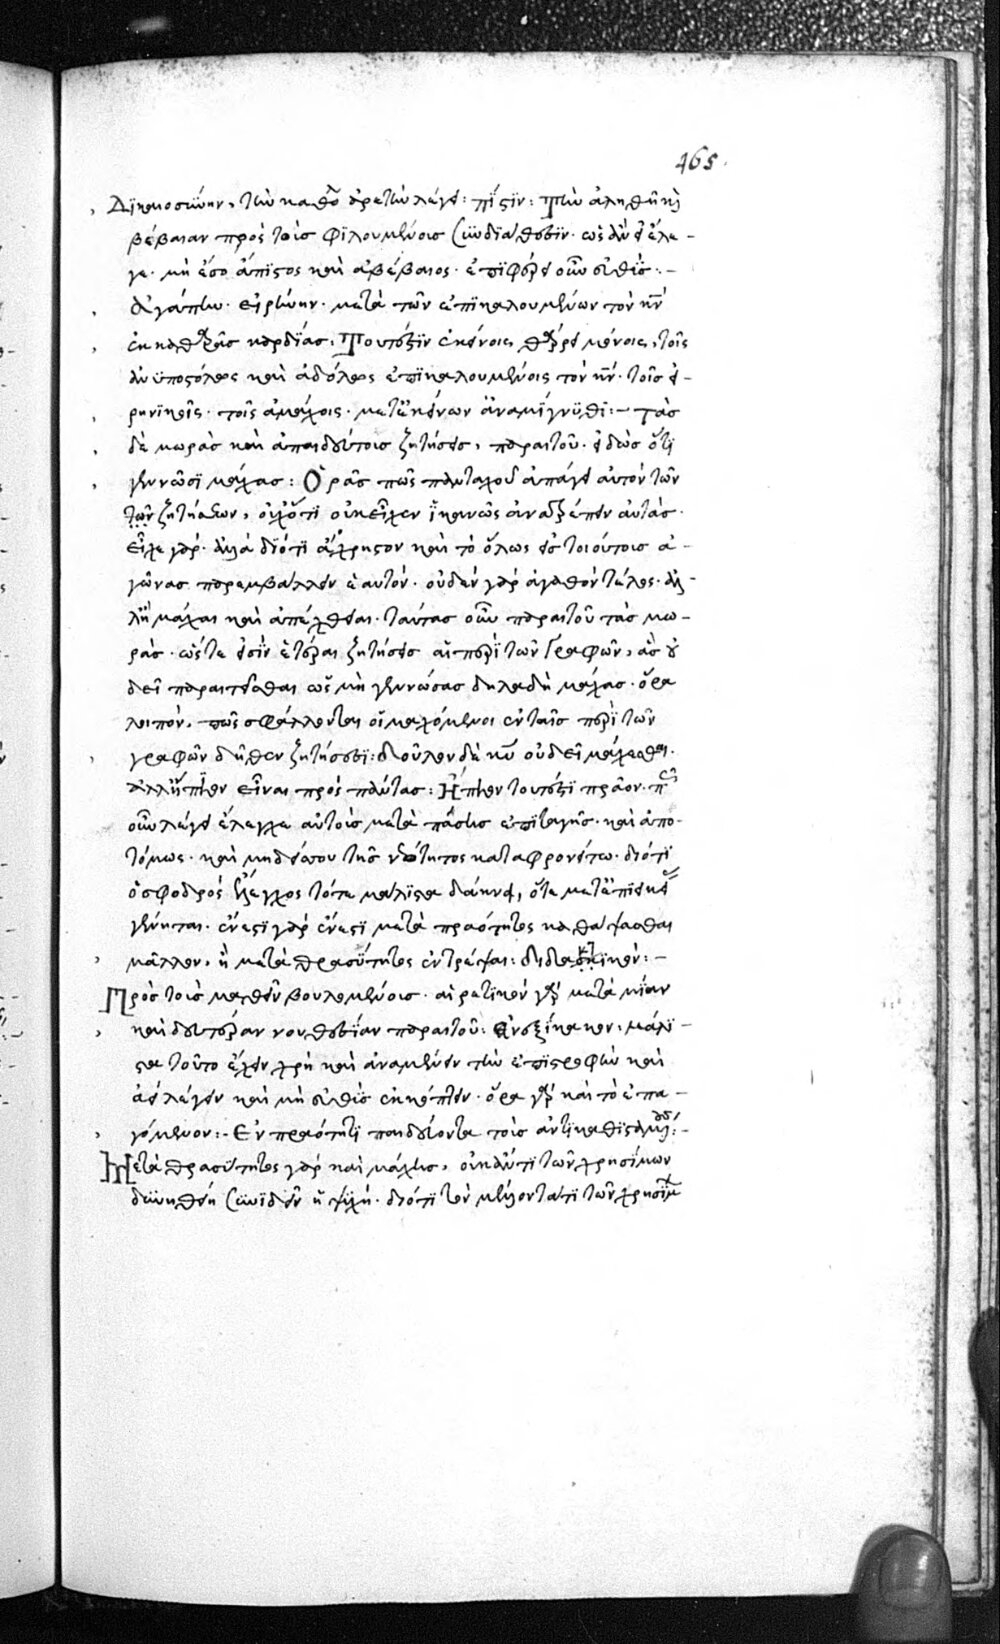 465.
Δϊκαιοσύνην, τὴν καθόλου ἀρετὴν λέγει: πίστϊν: Τὴν ἀληθῆ καὶ
βέβαιαν πρὸς τοὺς φϊλουμένους συνδιάθεσϊν. ὡς ἂν εἰ ἔλε-
γε. μὴ ἔσο ἄπϊστος καὶ ἀβέβαιος. ἐπϊφέρει οὖν εὐθύς:-
ἀγάπην. εἰρήνην. μετὰ τῶν ἐπϊκαλουμένων τὸν κν̄
ἐκ καθαρᾶς καρδΐας: Τουτέστϊν ἐκείνοις θάρρει μόνοις, τοῖς
ἀνϋποστόλως καὶ ἀδόλως ἐπϊκαλουμένοις τὸν κν̄. τοῖς εἰ-
ρηνϊκοῖς. τοῖς ἀμάχοις. μετ' ἐκείνων ἀναμίγνϋθϊ:- τὰς
δὲ μωρὰς καὶ ἀπαιδεύτους ζητήσεις, παραιτοῦ. εἰδὼς ὅτϊ
γεννῶσϊ μάχας: Ὁρᾶς πῶς πανταχοῦ ἀπάγει αὐτὸν τῶν
τῶν ζητήσεων, οὐχ ὅτϊ οὐκ εἶχεν ϊκανῶς ἀνατρέπειν αὐτάς.
εἶχε γάρ. ἀλλὰ δϊότϊ ἄχρηστον καὶ τὸ ὅλως εἰς τοιούτους ἀ-
γῶνας παρεμβάλλειν ἑαυτόν. οὐδὲν γὰρ ἀγαθὸν τέλος. ἀλ
λ' ἢ μάχαι καὶ ἀπέχθειαι. ταύτας οὖν παραιτοῦ τὰς μω-
ράς. ὥστε εἰσὶν ἕτεραι ζητήσεις αἱ περϊ τῶν Γραφῶν, ἃς οὐ
δεῖ παραιτεῖσθαι ὡς μὴ γεννώσας δηλαδὴ μάχας. ὅρα
λοιπόν. πῶς σφάλλονται οἱ μαχόμενοι ἐν ταῖς περϊ τῶν
γραφῶν δῆθεν ζητήσεσϊ: δοῦλον δὲ κῡ οὐ δεῖ μάχεσθαι.
ἀλλ' ἤπϊον εἶναι πρὸς πάντας: Ἤπϊον τουτέστϊ πρᾶον. πῶς
οὖν λέγει ἔλεγχε αὐτοὺς μετὰ πάσης ἐπϊταγῆς. καὶ ἀπο-
τόμως. καὶ μηδείς σου τῆς νεότητος καταφρονείτω. δϊότϊ
ὁ σφοδρὸς ἔλεγχος τότε μάλϊστα δάκνει, ὅτε μετ' ἐπϊεικείας
γένηται. ἔνεστϊ γὰρ ἔνεστϊ μετὰ πραότητος καθάψασθαι
μᾶλλον, ἢ μετὰ θρασΰτητος ἐντρέψαι: διδακτϊκόν:-
Πρὸς τοὺς μαθεῖν βουλομένους. αἱρετϊκὸν γὰρ μετὰ μίαν
καὶ δευτέραν νουθεσΐαν παραιτοῦ: ἀνεξΐκακον: μάλϊ-
στα τοῦτο ἔχειν χρὴ καὶ ἀναμένειν τὴν ἐπϊστροφὴν καὶ
ἀεὶ λέγειν καὶ μὴ εὐθὺς ἐκκόπτειν. ὅρα γὰρ καὶ τὸ ἐπα-
γόμενον:- Ἐν πραότητϊ παιδεύοντα τοὺς ἀντϊκαθϊσταμένους:-
Μετὰ θρασύτητος γὰρ καὶ μάχης, οὐκ ἄν τϊ τῶν χρησΐμων
δυνηθείη συνϊδεῖν ἡ ψϋχή. δϊότϊ τὸν μέλλοντά τϊ τῶν χρησΐμων